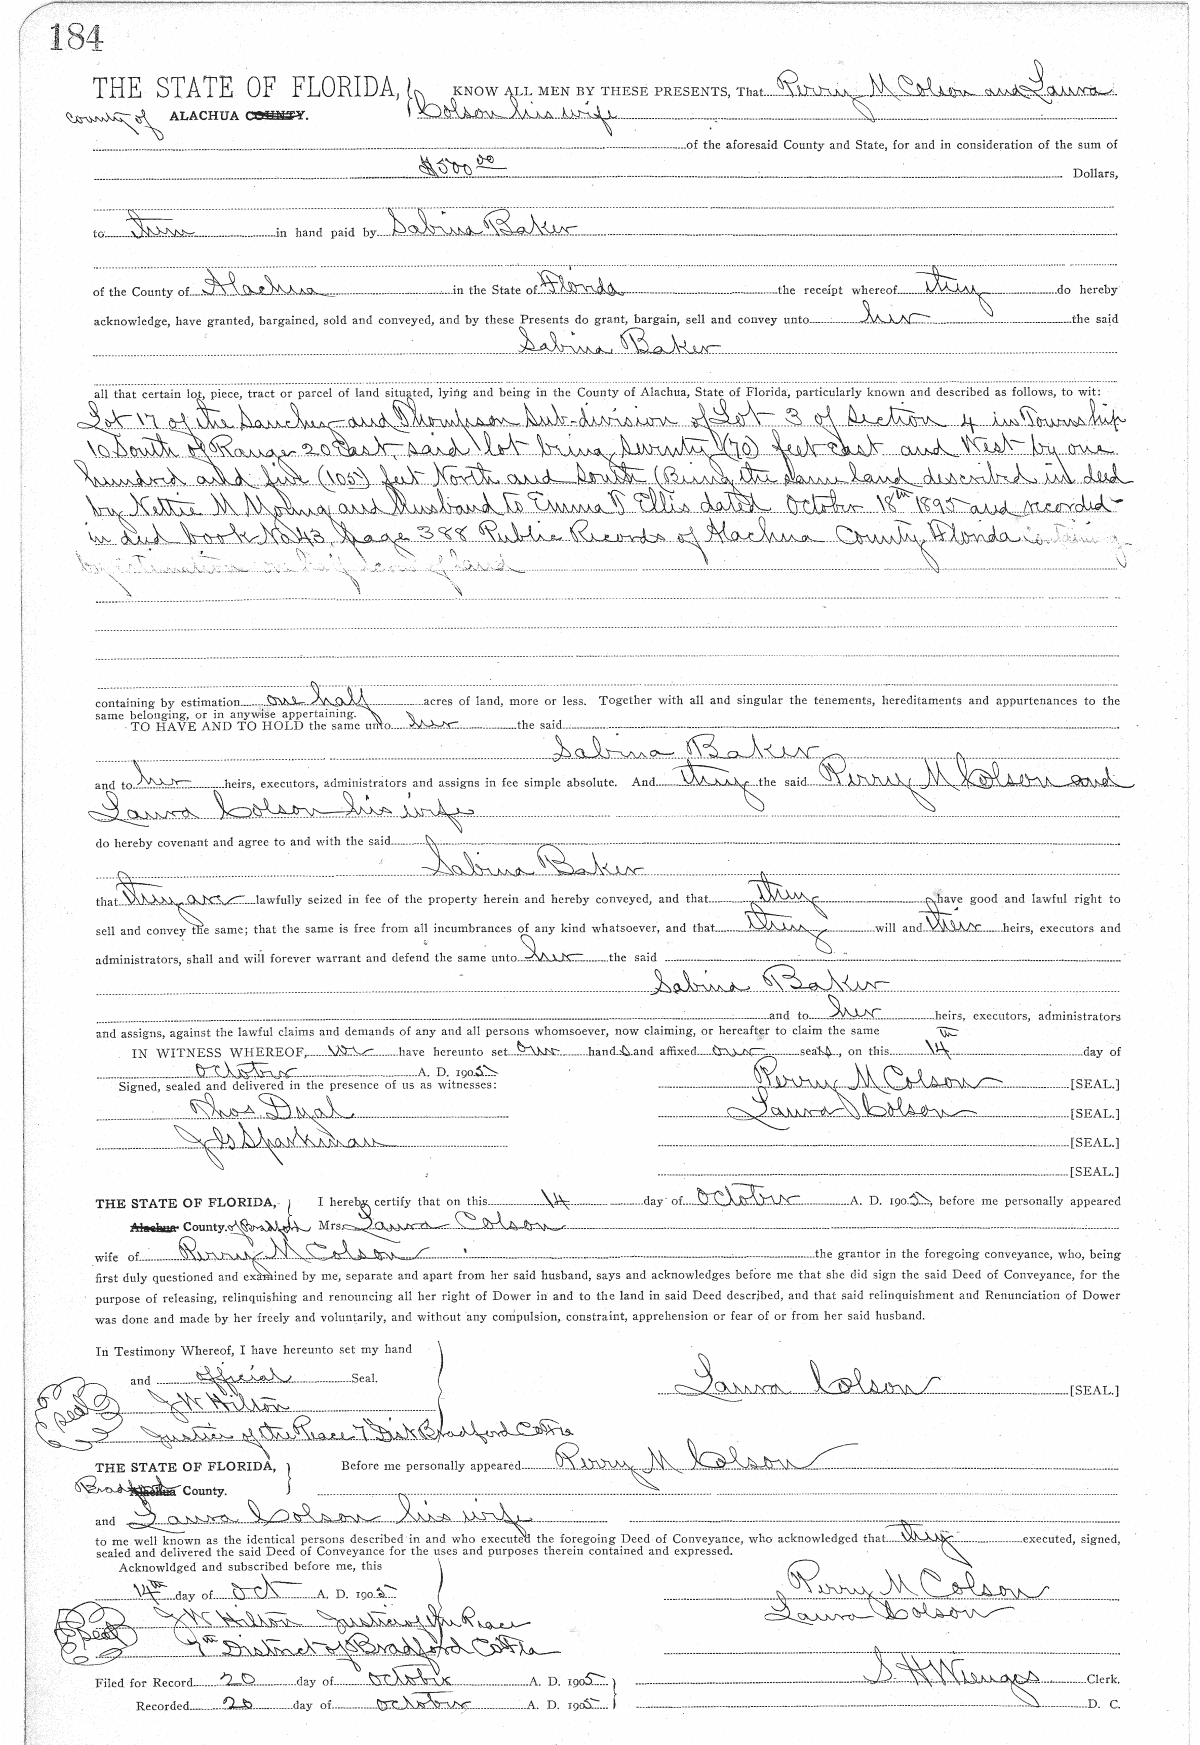 184
THE STATE OF FLORIDA, KNOW ALL MEN BY THESE PRESENTS, That Perry M Colson and Laura
County of ALACHUA COUNTY. Colson his wife
of the aforesaid County and State, for and in consideration of the sum of
$500 00 Dollars,
to them in hand paid by Sabina Baker
of the County of Alachua in the State of Florida the receipt whereof they do hereby
acknowledge, have granted, bargained, sold and conveyed, and by these Presents do grant, bargain, sell and convey unto her the said
Sabina Baker
all that certain lot, piece, tract or parcel of land situated, lying and being in the County of Alachua, State of Florida, particularly known and described as follows, to wit:
Lot 17 of the Sanchez and Thompson Sub-division of Lot 3 of Section 4 in Township
10 South of Range 20 East, said lot being Seventy (70) feet East and West by one
hundred and five (105) feet North and South (Being the same land described in deed
by Nettie M and Husband to Emma Ellis dated October 18th 1895 and recorded
in deed book No 43 page 388 Public Records of Alachua County Florida containing
by estimation one half of land
containing by estimation one half acres of land, more or less. Together with all and singular the tenements, hereditaments and appurtenances to the
same belonging, or in anywise appertaining.
TO HAVE AND TO HOLD the same unto her the said
Sabina Baker
and to her heirs, executors, administrators and assigns in fee simple absolute. And they the said Perry M Colson and
Laura Colson his wife
do hereby covenant and agree to and with the said
Sabina Baker
that they are lawfully seized in fee of the property herein and hereby conveyed, and that they have good and lawful right to
sell and convey the same; that the same is free from all incumbrances of any kind whatsoever, and that they will and their heirs, executors and
administrators, shall and will forever warrant and defend the same unto her the said
Sabina Baker
and to her heirs, executors, administrators
and assigns, against the lawful claims and demands of any and all persons whomsoever, now claiming, or hereafter to claim the same
IN WITNESS WHEREOF, we have hereunto set our hands and affixed our seals, on this 14th day of
October A. D. 1905
Signed, sealed and delivered in the presence of us as witnesses: Perry M Colson [SEAL.]
Thos Dyal Laura Colson [SEAL.]
J G Sparkman [SEAL.]
[SEAL.]
THE STATE OF FLORIDA, I hereby certify that on this 14 day of October A. D. 1905, before me personally appeared
Alachua County. of Bradford Mrs. Laura Colson
wife of Perry M Colson the grantor in the foregoing conveyance, who, being
first duly questioned and examined by me, separate and apart from her said husband, says and acknowledges before me that she did sign the said Deed of Conveyance, for the
purpose of releasing, relinquishing and renouncing all her right of Dower in and to the land in said Deed described, and that said relinquishment and Renunciation of Dower
was done and made by her freely and voluntarily, and without any compulsion, constraint, apprehension or fear of or from her said husband.
In Testimony Whereof, I have hereunto set my hand
and official Seal. Laura Colson [SEAL.]
seal J W Hilton
Justice of the Peace 7 Dist Bradford Co Fla
THE STATE OF FLORIDA, Before me personally appeared Perry M Colson
Bradford Alachua County.
and Laura Colson his wife
to me well known as the identical persons described in and who executed the foregoing Deed of Conveyance, who acknowledged that they executed, signed,
sealed and delivered the said Deed of Conveyance for the uses and purposes therein contained and expressed.
Acknowldged and subscribed before me, this
14th day of Oct A. D. 1905 Perry M Colson
seal J W Hilton Justice of the Peace Laura Colson
7th District of Bradford Co Fla
Filed for Record 20 day of October A. D. 1905 S. H. Wienges Clerk.
Recorded 20 day of October A. D. 1905 D. C.